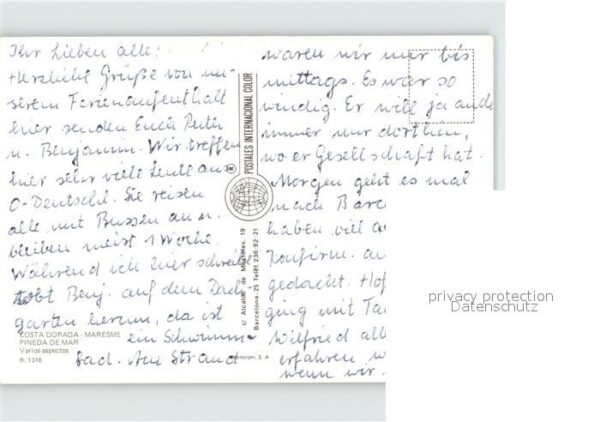 Ihr Lieben alle!
Herzliche Grüße von un-
serem Ferienaufenthalt
hier senden Euch Ruth
u. Benjamin. Wir treffen
hier sehr viele Leute aus
O-Deutschl. Sie reisen
alle mit Bussen an u.
bleiben meist 1 Woche.
Während ich hier schreibe
tobt Benj. auf dem Dach-
garten herum, da ist
ein Schwimm-
bad. Am Strand
COSTA DORADA - MARESME
PINEDA DE MAR
Varios aspectos
B. 1318
POSTALES INTERNACIONAL COLOR
c/ Alcalde de Móstoles, 19
Barcelona-25 Teléf. 236 92 21
S. A.
waren wir nur bis
mittags. Es war so
windig. Er will ja auch
immer nur dorthin,
wo er Gesellschaft hat.
Morgen geht es mal
nach Barc
haben viel a
Konfirm. a
gedacht. Hof
ging mit Ta
Wilfried all
erfahren w
wenn wir
privacy protection
Datenschutz